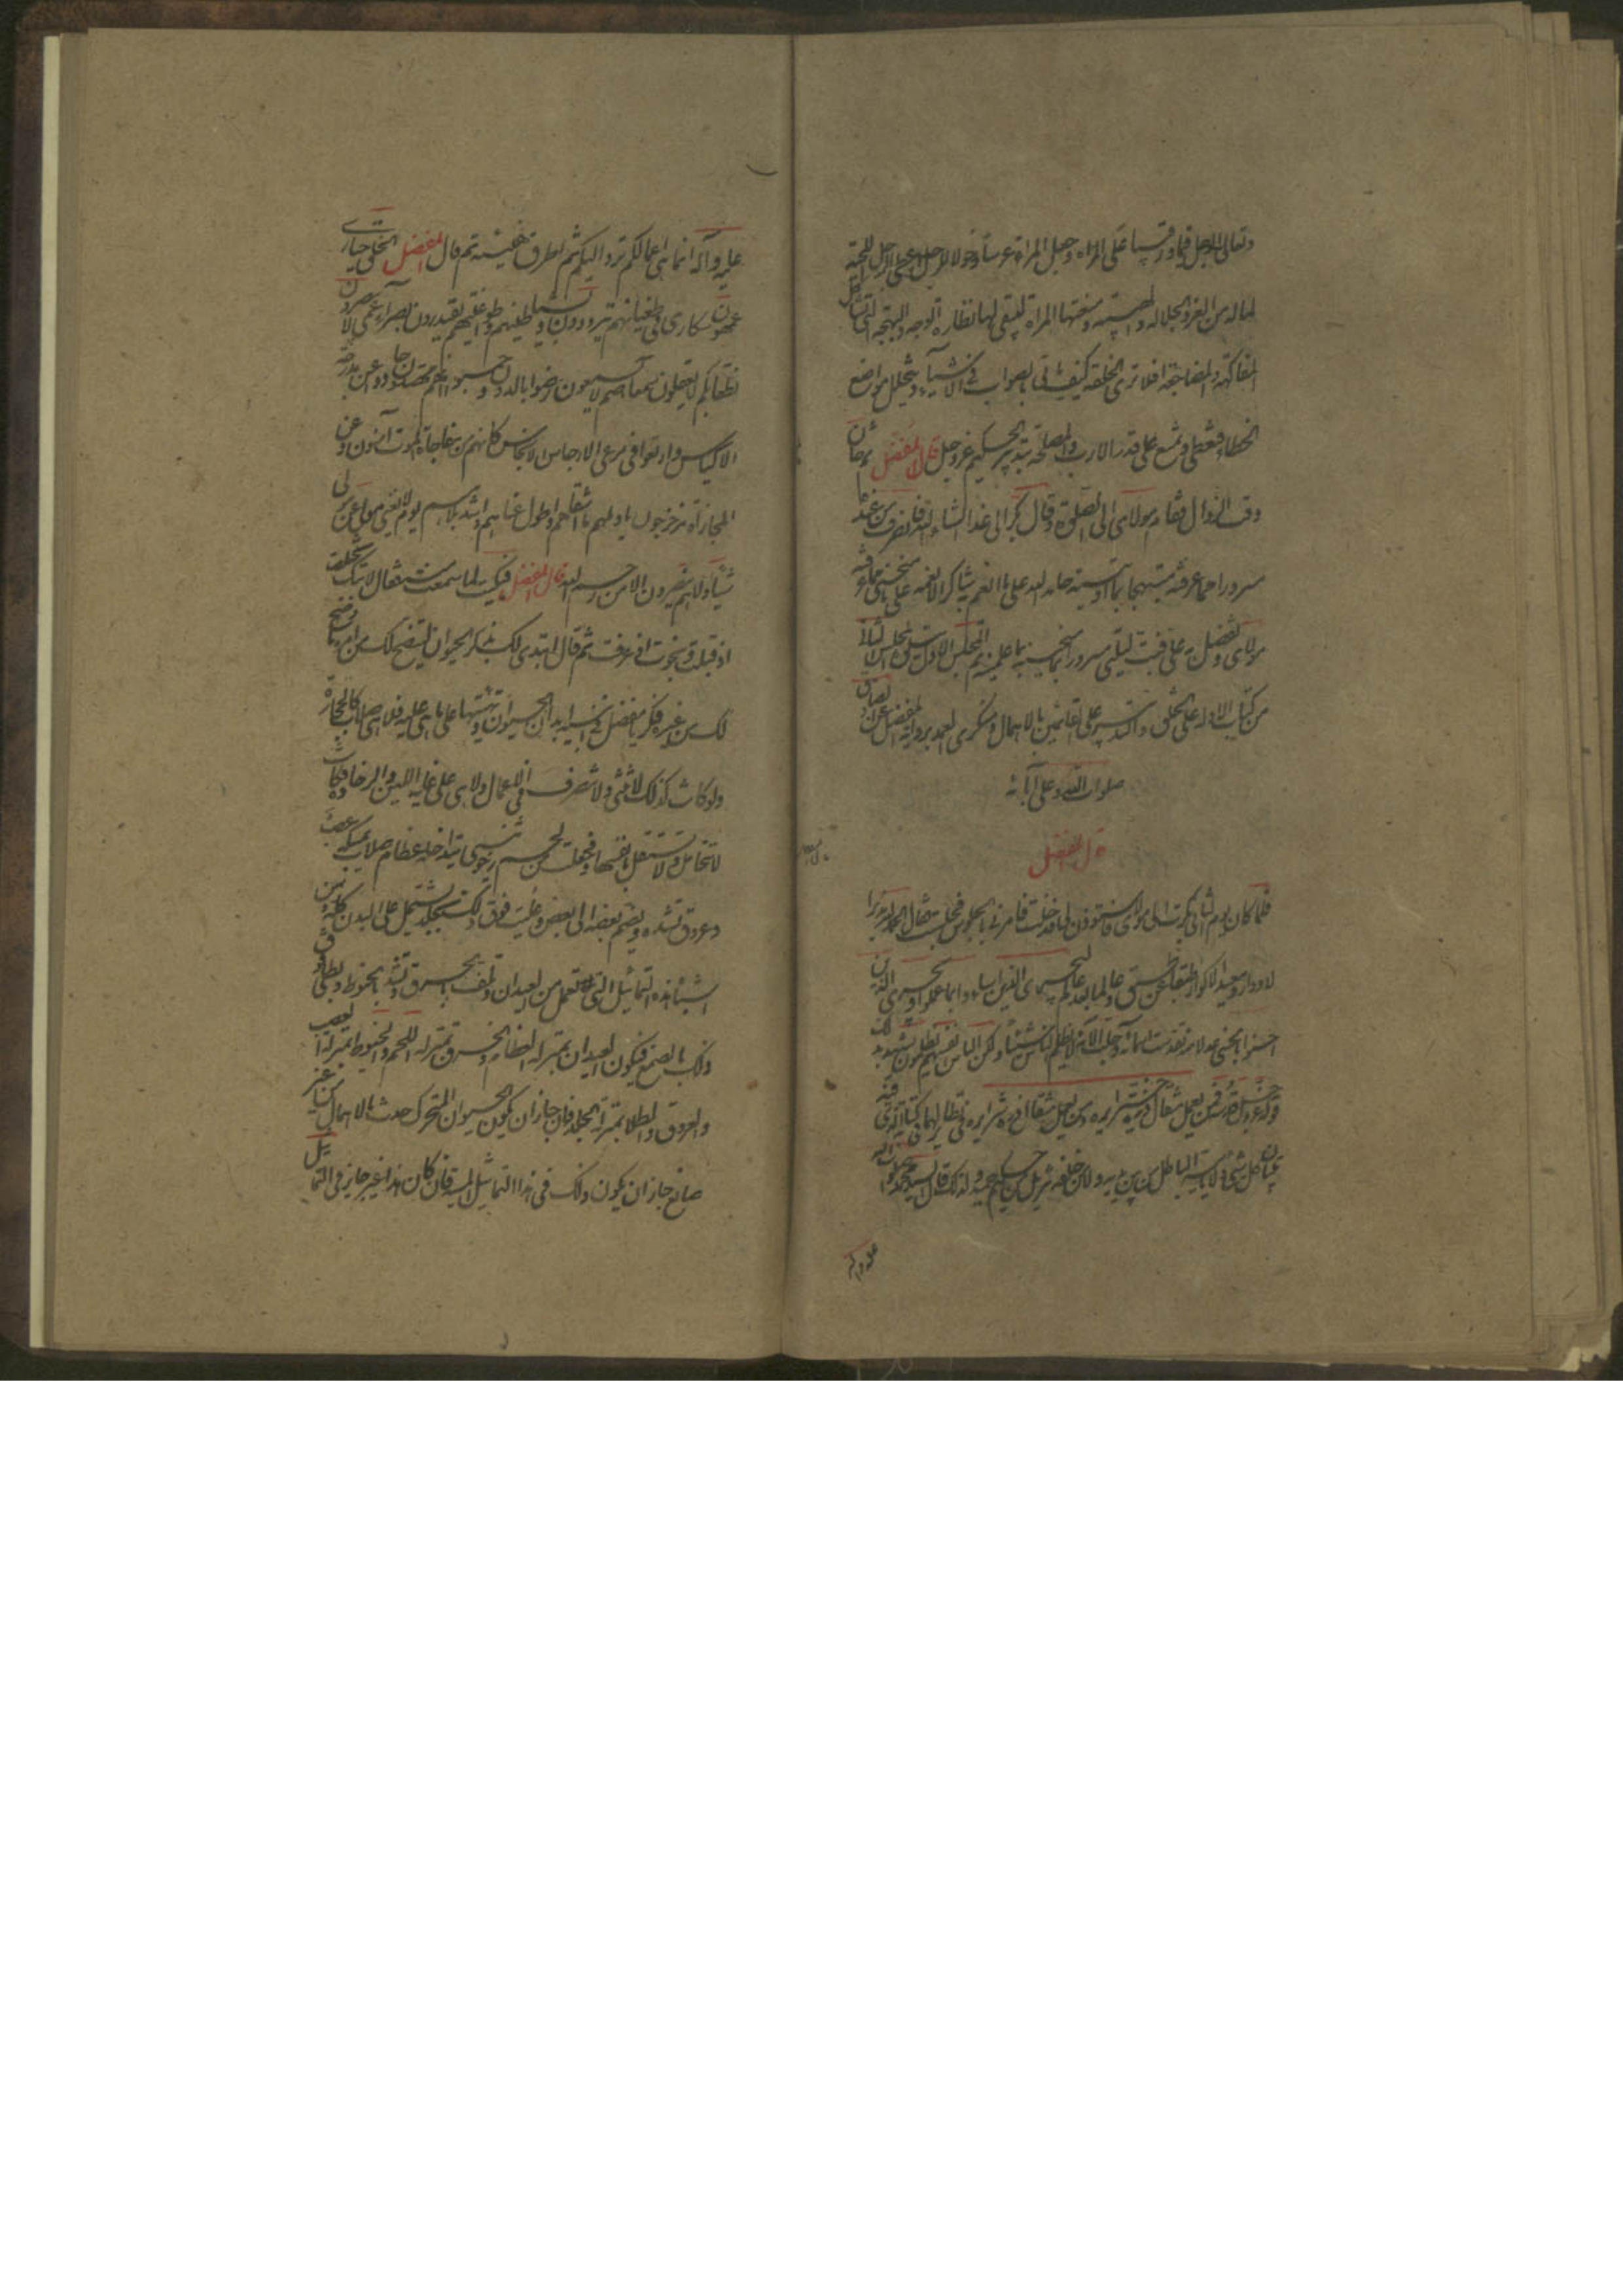 وتعالى الرجل قيما ورقيبا على المراة وجعل المراة عرسا وخولا للرجل اعطى الرجل اللحية
لما له من العز والجلالة والهيبة ومنعتها المراة ليبقى لها نظارة الوجه والبهجة التي تشاكل
المفاكهة والمضاجعة افلا ترى الخلقة كيف يأتي بالصواب في الاشياء ويتخلل مواضع
الخطاء فتعطى وتمنع على قدر الارب والمصلحة بتدبير الحكيم عز وجل قال المفضل ثم حان
وقت الزوال فقام مولاى الى الصلوة وقال بكر الى غدا انشاء الله فانصرفت من عنده
مسرورا بما عرفته مبتهجا بما اوتيته حامدا لله على ما انعم شاكرا لانعمه على ما منحنى بما عرفنيه
مولاى وتفضل به على فبت ليلتى مسرورا بما علمنيه تم المجلس الاول يتلوه المجلس الثانى
من كتاب الادلة على الخلق والتدبير على القائلين بالاهمال ومنكرى العمد برواية المفضل عن الصادق
صلوات الله وعلى آبائه
قال المفضل
فلما كان اليوم الثانى بكرت الى مولاى فاستوذن لى فدخلت فامرنى بالجلوس فجلست فقال الحمد لله مدبر
الادوار ومعيد الاكوار طبقا عن طبق وعالما بعد عالم ليجزى الذين اساءوا بما عملوا ويجزى الذين
احسنوا بالحسنى عدلا منه تقدست اسمائه وجلت آلائه لا يظلم الناس شيئا ولكن الناس انفسهم يظلمون يشهد بذلك
قوله عز وجل فمن يعمل مثقال ذرة خيرا يره ومن يعمل مثقال ذرة شرا يره فى نظاير لها فى كتابه الذى فيه
تبيان كل شئ ولا يأتيه الباطل من بين يديه ولا من خلفه تنزيل من حكيم حميد ولذلك قال السيد محمد صلوات الله
عليه وآله
عليه وآله انما هى اعمالكم ترد اليكم ثم اطرق هنيئة ثم قال يا مفضل الخلق حيارى
عمهون سكارى فى طغيانهم يترددون وبشياطينهم وطواغيتهم يقتدرون بصراء عمى لا يبصرون
نطقاء بكم لا يعقلون سمعاء صم لا يسمعون رضوا بالدون وحسبوا انهم مهتدون حادوا عن مدرجة
الاكياس وارتعوا فى مرعى الارجاس الانجاس كانهم من مفاجاة الموت آمنون وعن
المجازاة مزحزحون يا ويلهم ما اشقاهم واطول عنائهم واشد بلائهم يوم لا يغنى مولى عن مولى
شيئا ولا هم ينصرون الا من رحم الله قال المفضل فبكيت لما سمعت منه فقال لا تبك تخلصت
اذ قبلت ونجوت اذ عرفت ثم قال ابتدى لك بذكر الحيوان ليتضح لك من امره ما وضح
لك من غيره فكر يا مفضل فى ابنية ابدان الحيوان وتهيئتها على ما هى عليه فلا هى صلاب كالحجارة
ولو كانت كذلك لا تنثنى ولا تتصرف فى الاعمال ولا هى على غاية اللين والرخاوة فكانت
لا تتحامل ولا تستقل بانفسها فجعلت من لحم رخو ينثنى يتداخله عظام صلاب يمسكه عصب
وعروق تشده ويضم بعضه الى بعض وغلبت فوق ذلك بجلد يشتمل على البدن كله ومن
اشباه ذلك هذه التماثيل التى تعمل من العيدان وتلف بالخرق وتشد بالخيوط ويطلى فوق
ذلك بالصمغ فيكون العيدان بمنزلة العظام والخرق بمنزلة اللحم والخيوط بمنزلة العصب
والعروق والطلا بمنزلة الجلد فان جاز ان يكون الحيوان المتحرك حدث بالاهمال من غير
صانع جاز ان يكون ذلك فى هذا التماثيل الميتة فان كان هذا غير جايز فى التماثيل